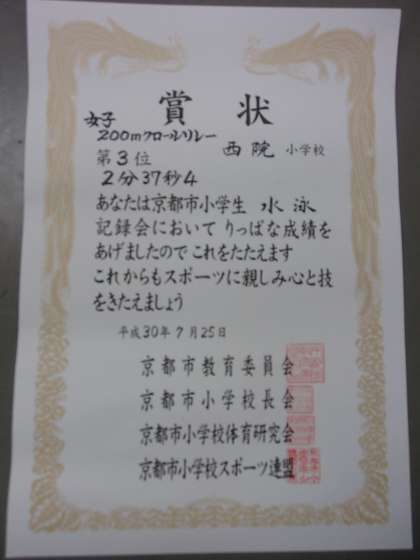 賞状
女子
200mクロールリレー
西院 小学校
第3位
2分37秒4
あなたは京都市小学生 水泳
記録会において りっぱな成績を
あげましたので これをたたえます
これからもスポーツに親しみ心と技
をきたえましょう
平成30年7月25日
京都市教育委員会
京都市小学校長会
京都市小学校体育研究会
京都市小学校スポーツ連盟